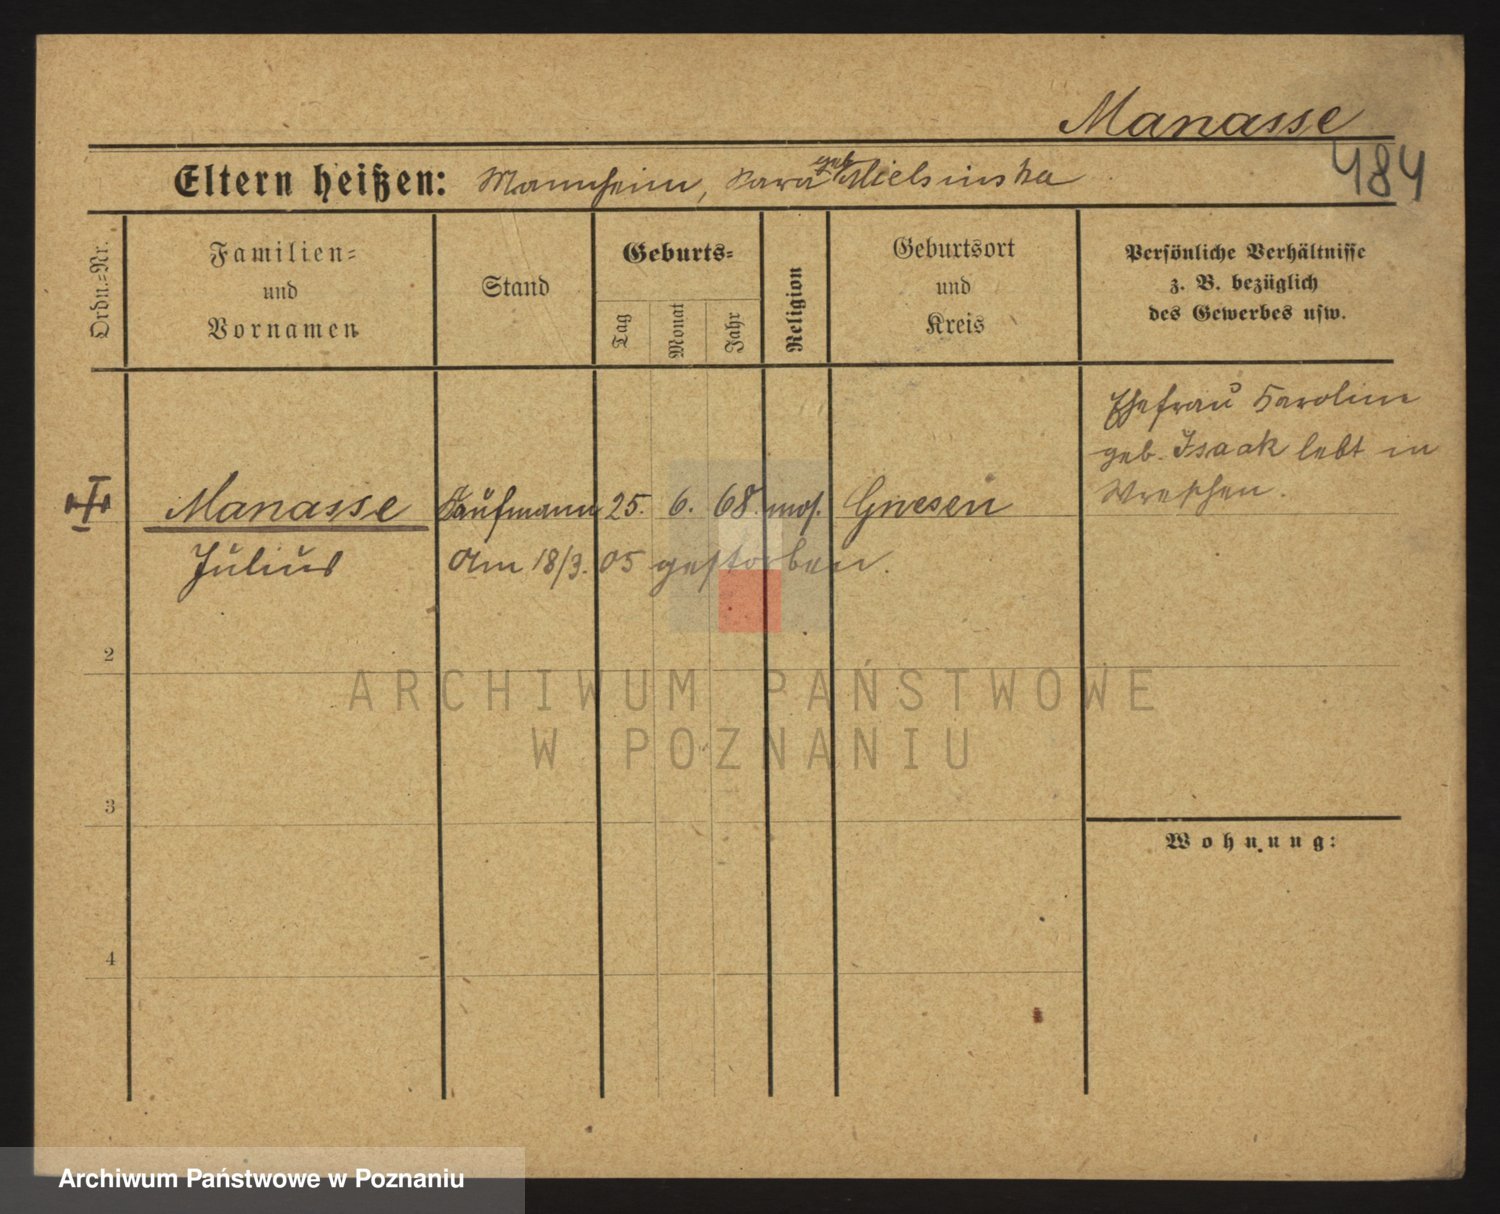 Manasse
484
Eltern heißen: Mannheim, Sara geb. Mielsinska
Ordn.-Nr.
Familien-
und
Vornamen
Stand
Geburts-
Tag
Monat
Jahr
Religion
Geburtsort
und
Kreis
Persönliche Verhältnisse
z. B. bezüglich
des Gewerbes usw.
Ehefrau Karoline
geb. Isaak lebt in
Wreschen.
Manasse Kaufmann 25. 6. 68. mos. Gnesen
Julius Am 18/3. 05 gestorben.
2
3
4
Wohnung:
ARCHIWUM PAŃSTWOWE
W POZNANIU
Archiwum Państwowe w Poznaniu